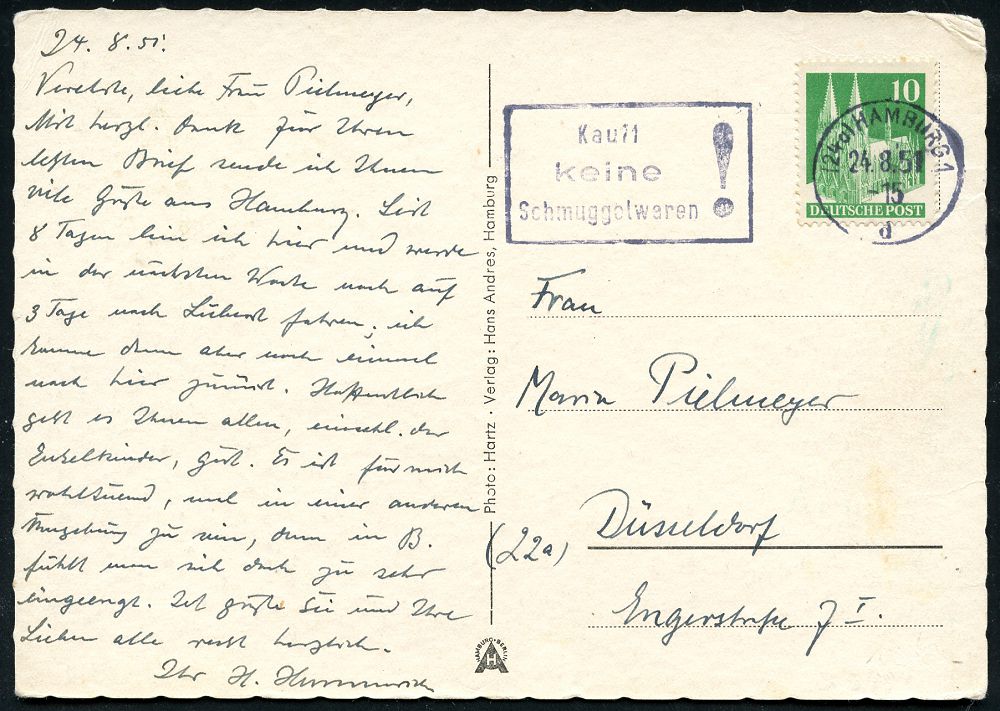 24. 8. 51.
Verehrte, liebe Frau Pielmeyer,
Mit herzl. Dank für Ihren
letzten Brief sende ich Ihnen
viele Grüße aus Hamburg. Seit
8 Tagen bin ich hier und werde
in der nächsten Woche noch auf
3 Tage nach Lübeck fahren; ich
komme dann aber noch einmal
nach hier zurück. Hoffentlich
geht es Ihnen allen, einschl. der
Enkelkinder, gut. Es ist für mich
wohltuend, mal in einer anderen
Umgebung zu sein, denn in B.
fühlt man sich doch zu sehr
eingeengt. Ich grüße Sie und Ihre
Lieben alle recht herzlich.
Ihr H.
Photo: Hartz · Verlag: Hans Andres, Hamburg
HAMBURG·BERLIN
HA
Kauft
keine
Schmuggelwaren !
10
DEUTSCHE POST
(24a) HAMBURG 1
24.8.51
-15
d
Frau
Maria Pielmeyer
(22a) Düsseldorf
Engerstraße 7 I.